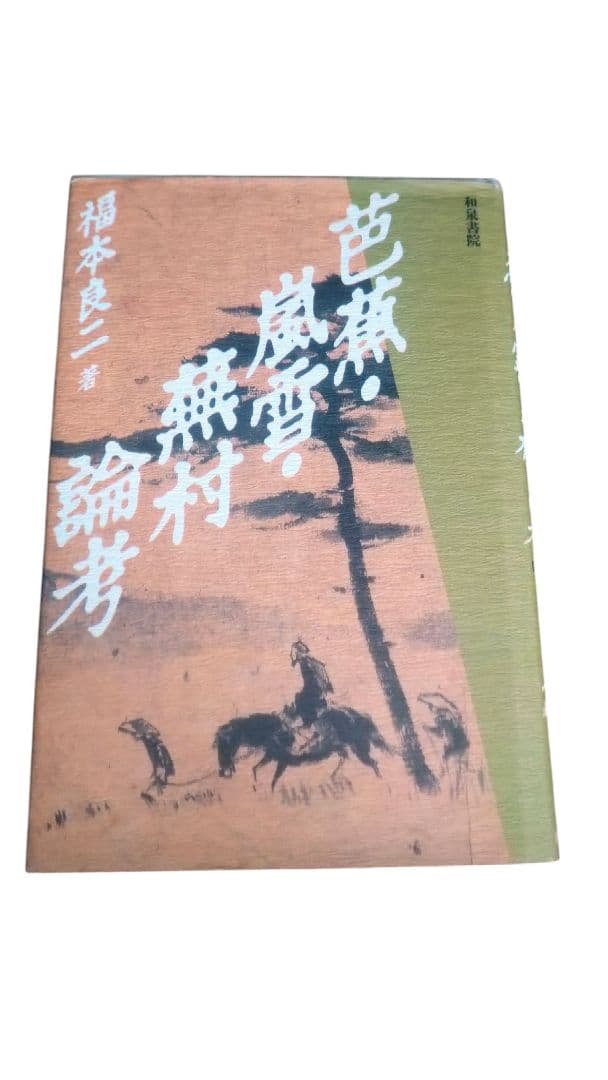 和泉書院
芭蕉・
嵐雪・
蕪村
論考
福本良二 著